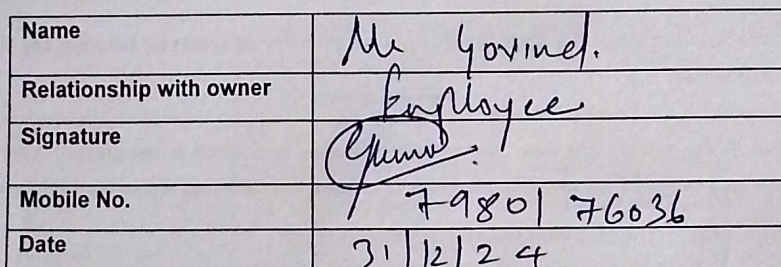 Name Mr Govind.
Relationship with owner Employee
Signature
Mobile No. 79801 76036
Date 31/12/24